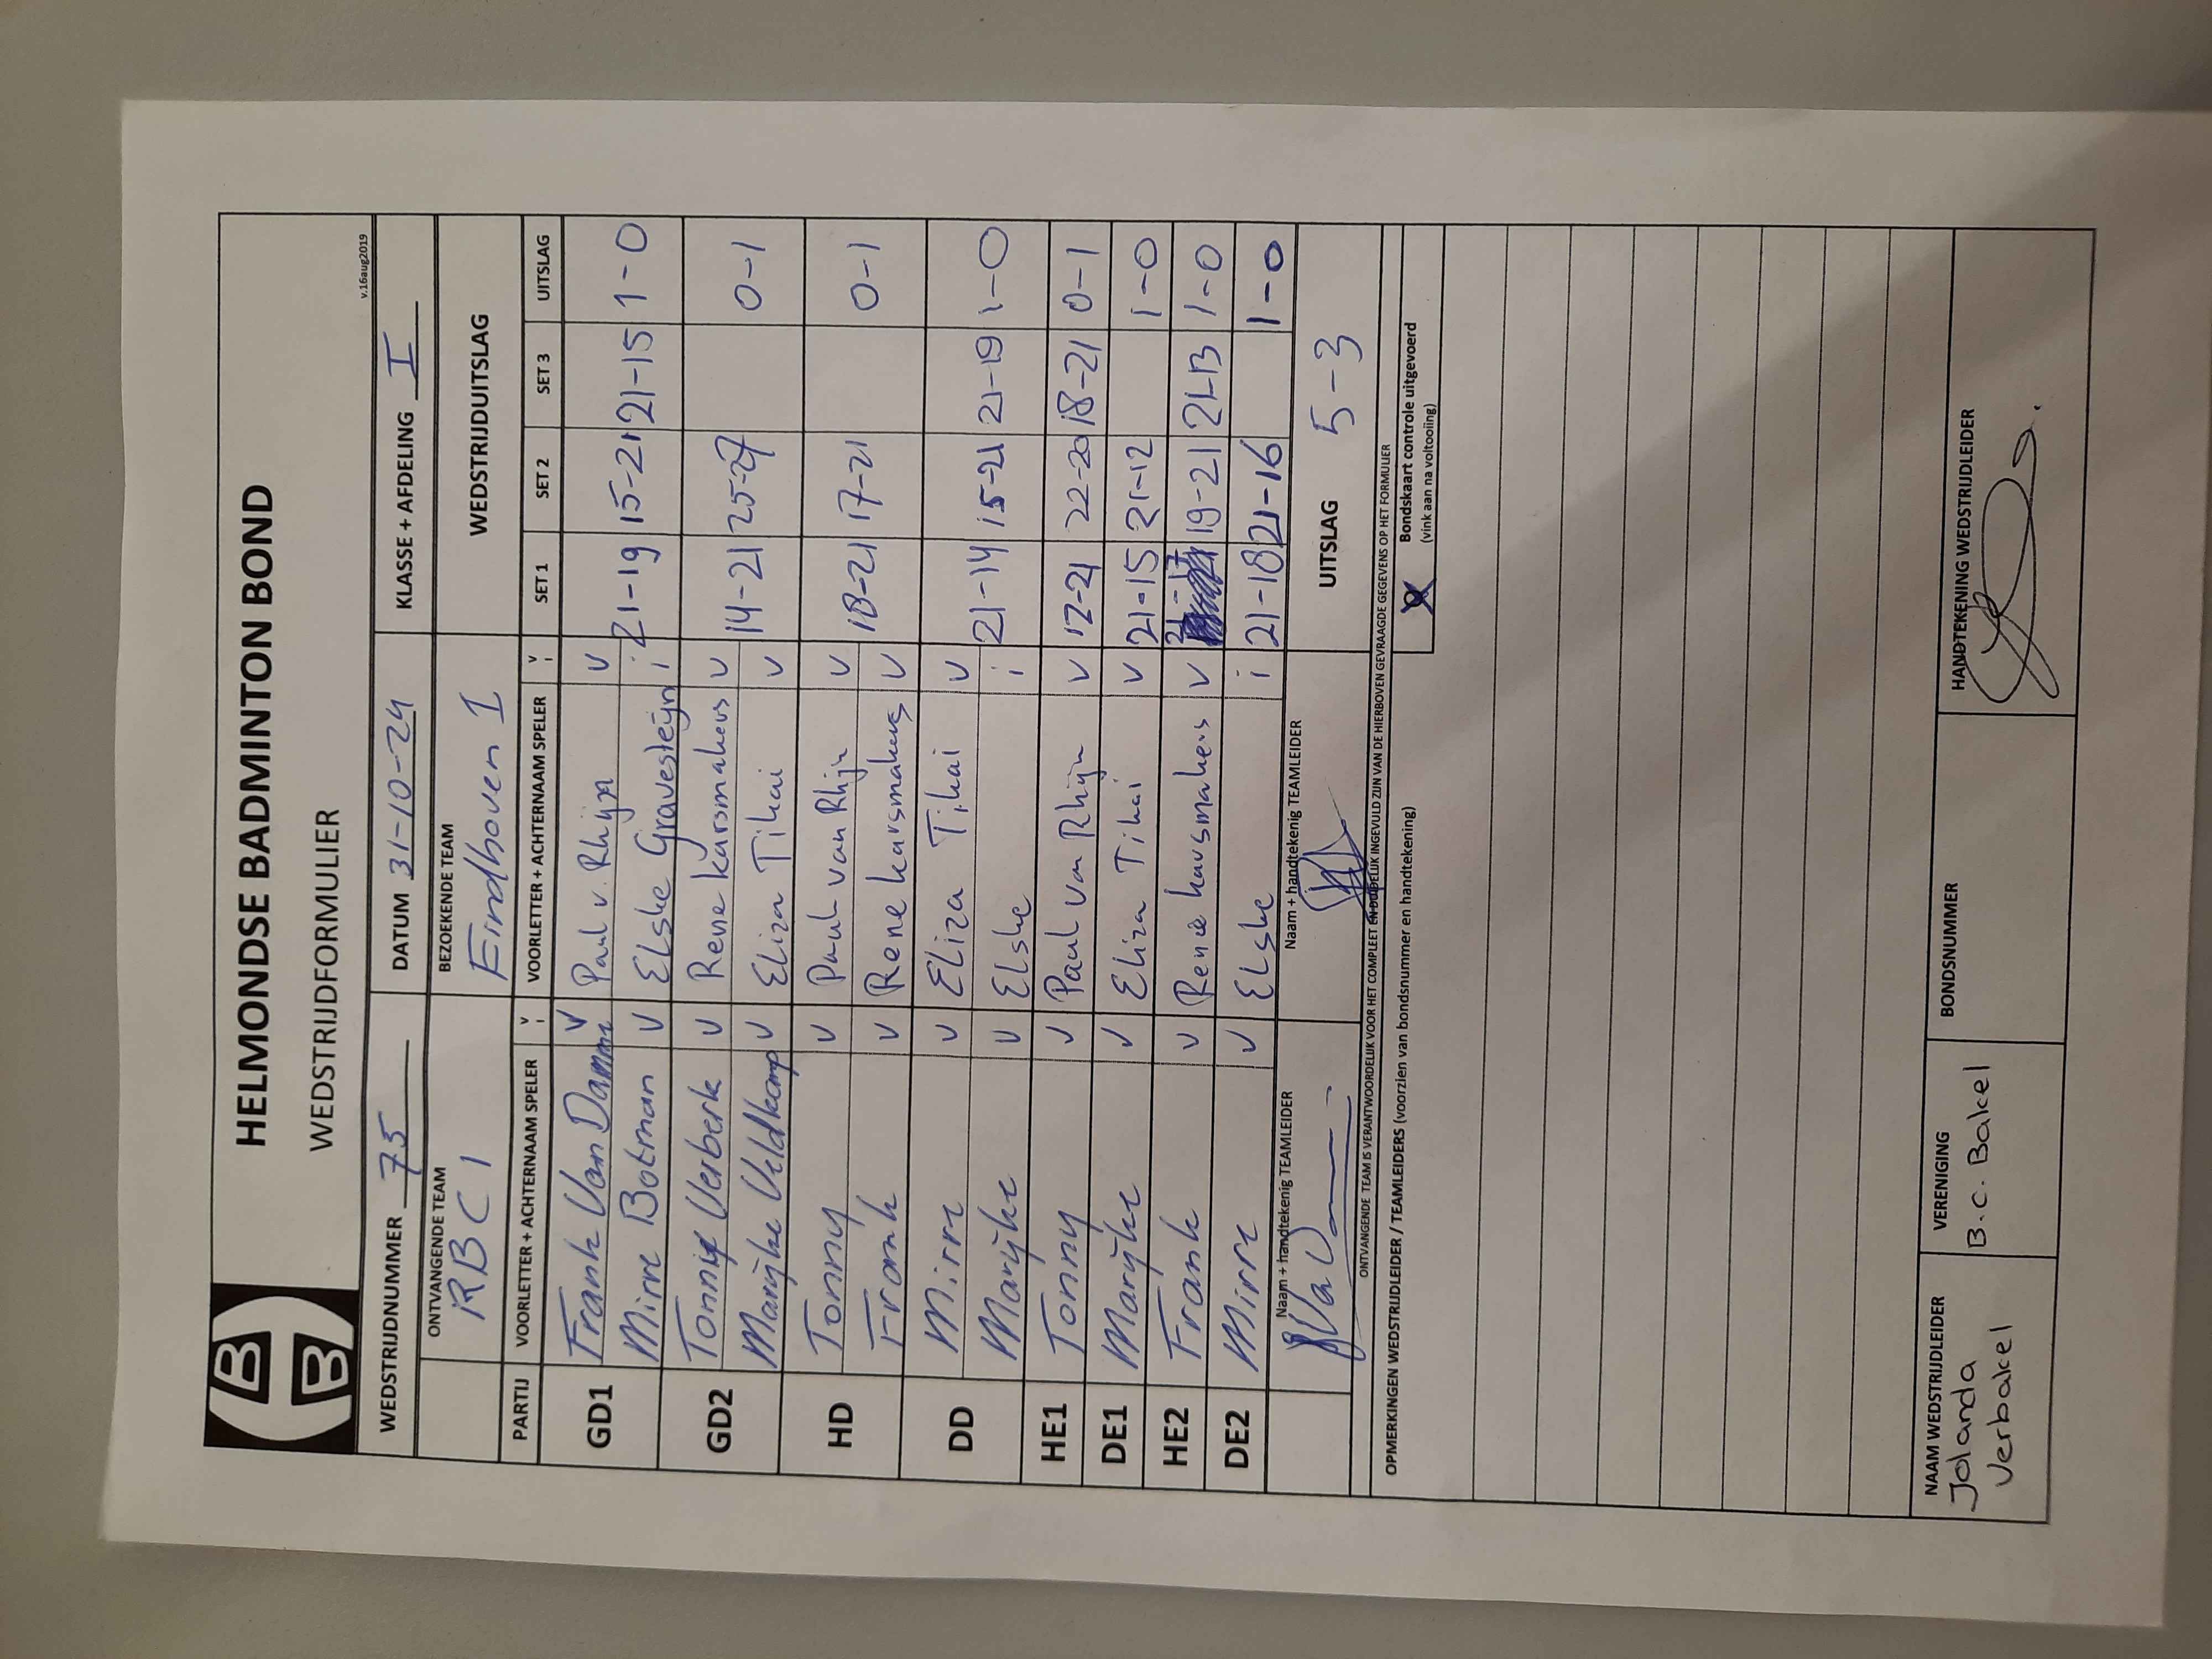 HELMONDSE BADMINTON BOND
WEDSTRIJDFORMULIER
v.16aug2019
WEDSTRIJDNUMMER 75 DATUM 31-10-24 KLASSE + AFDELING I
ONTVANGENDE TEAM BEZOEKENDE TEAM WEDSTRIJDUITSLAG
RBC 1 Eindhoven I
PARTIJ VOORLETTER + ACHTERNAAM SPELER V I VOORLETTER + ACHTERNAAM SPELER V I SET 1 SET 2 SET 3 UITSLAG
GD1 Frank Van Damme V Paul v. Rhijn V
Mirre Botman V Elske Gravesteijn i 21-19 15-21 21-15 1-0
GD2 Tonny Verberk V Rene Karsmakers V
Marijke Veldkamp V Eliza Tihai V 14-21 25-27 0-1
HD Tonny V Paul van Rhijn V
Frank V Rene karsmakers V 18-21 17-21 0-1
DD Mirre V Eliza Tihai V
Marijke V Elske i 21-14 15-21 21-19 1-0
HE1 Tonny V Paul van Rhijn V 12-21 22-20 18-21 0-1
DE1 Marijke V Eliza Tihai V 21-15 21-12 1-0
HE2 Frank V René karsmakers V 21-17 19-21 21-13 1-0
DE2 Mirre V Elske i 21-18 21-16 1-0
Naam + handtekenig TEAMLEIDER Naam + handtekenig TEAMLEIDER UITSLAG 5-3
ONTVANGENDE TEAM IS VERANTWOORDELIJK VOOR HET COMPLEET EN DUIDELIJK INGEVULD ZIJN VAN DE HIERBOVEN GEVRAAGDE GEGEVENS OP HET FORMULIER
OPMERKINGEN WEDSTRIJDLEIDER / TEAMLEIDERS (voorzien van bondsnummer en handtekening)
Bondskaart controle uitgevoerd
(vink aan na voltooiing)
NAAM WEDSTRIJDLEIDER VERENIGING BONDSNUMMER HANDTEKENING WEDSTRIJDLEIDER
Jolanda B.C. Bakel
Verbakel